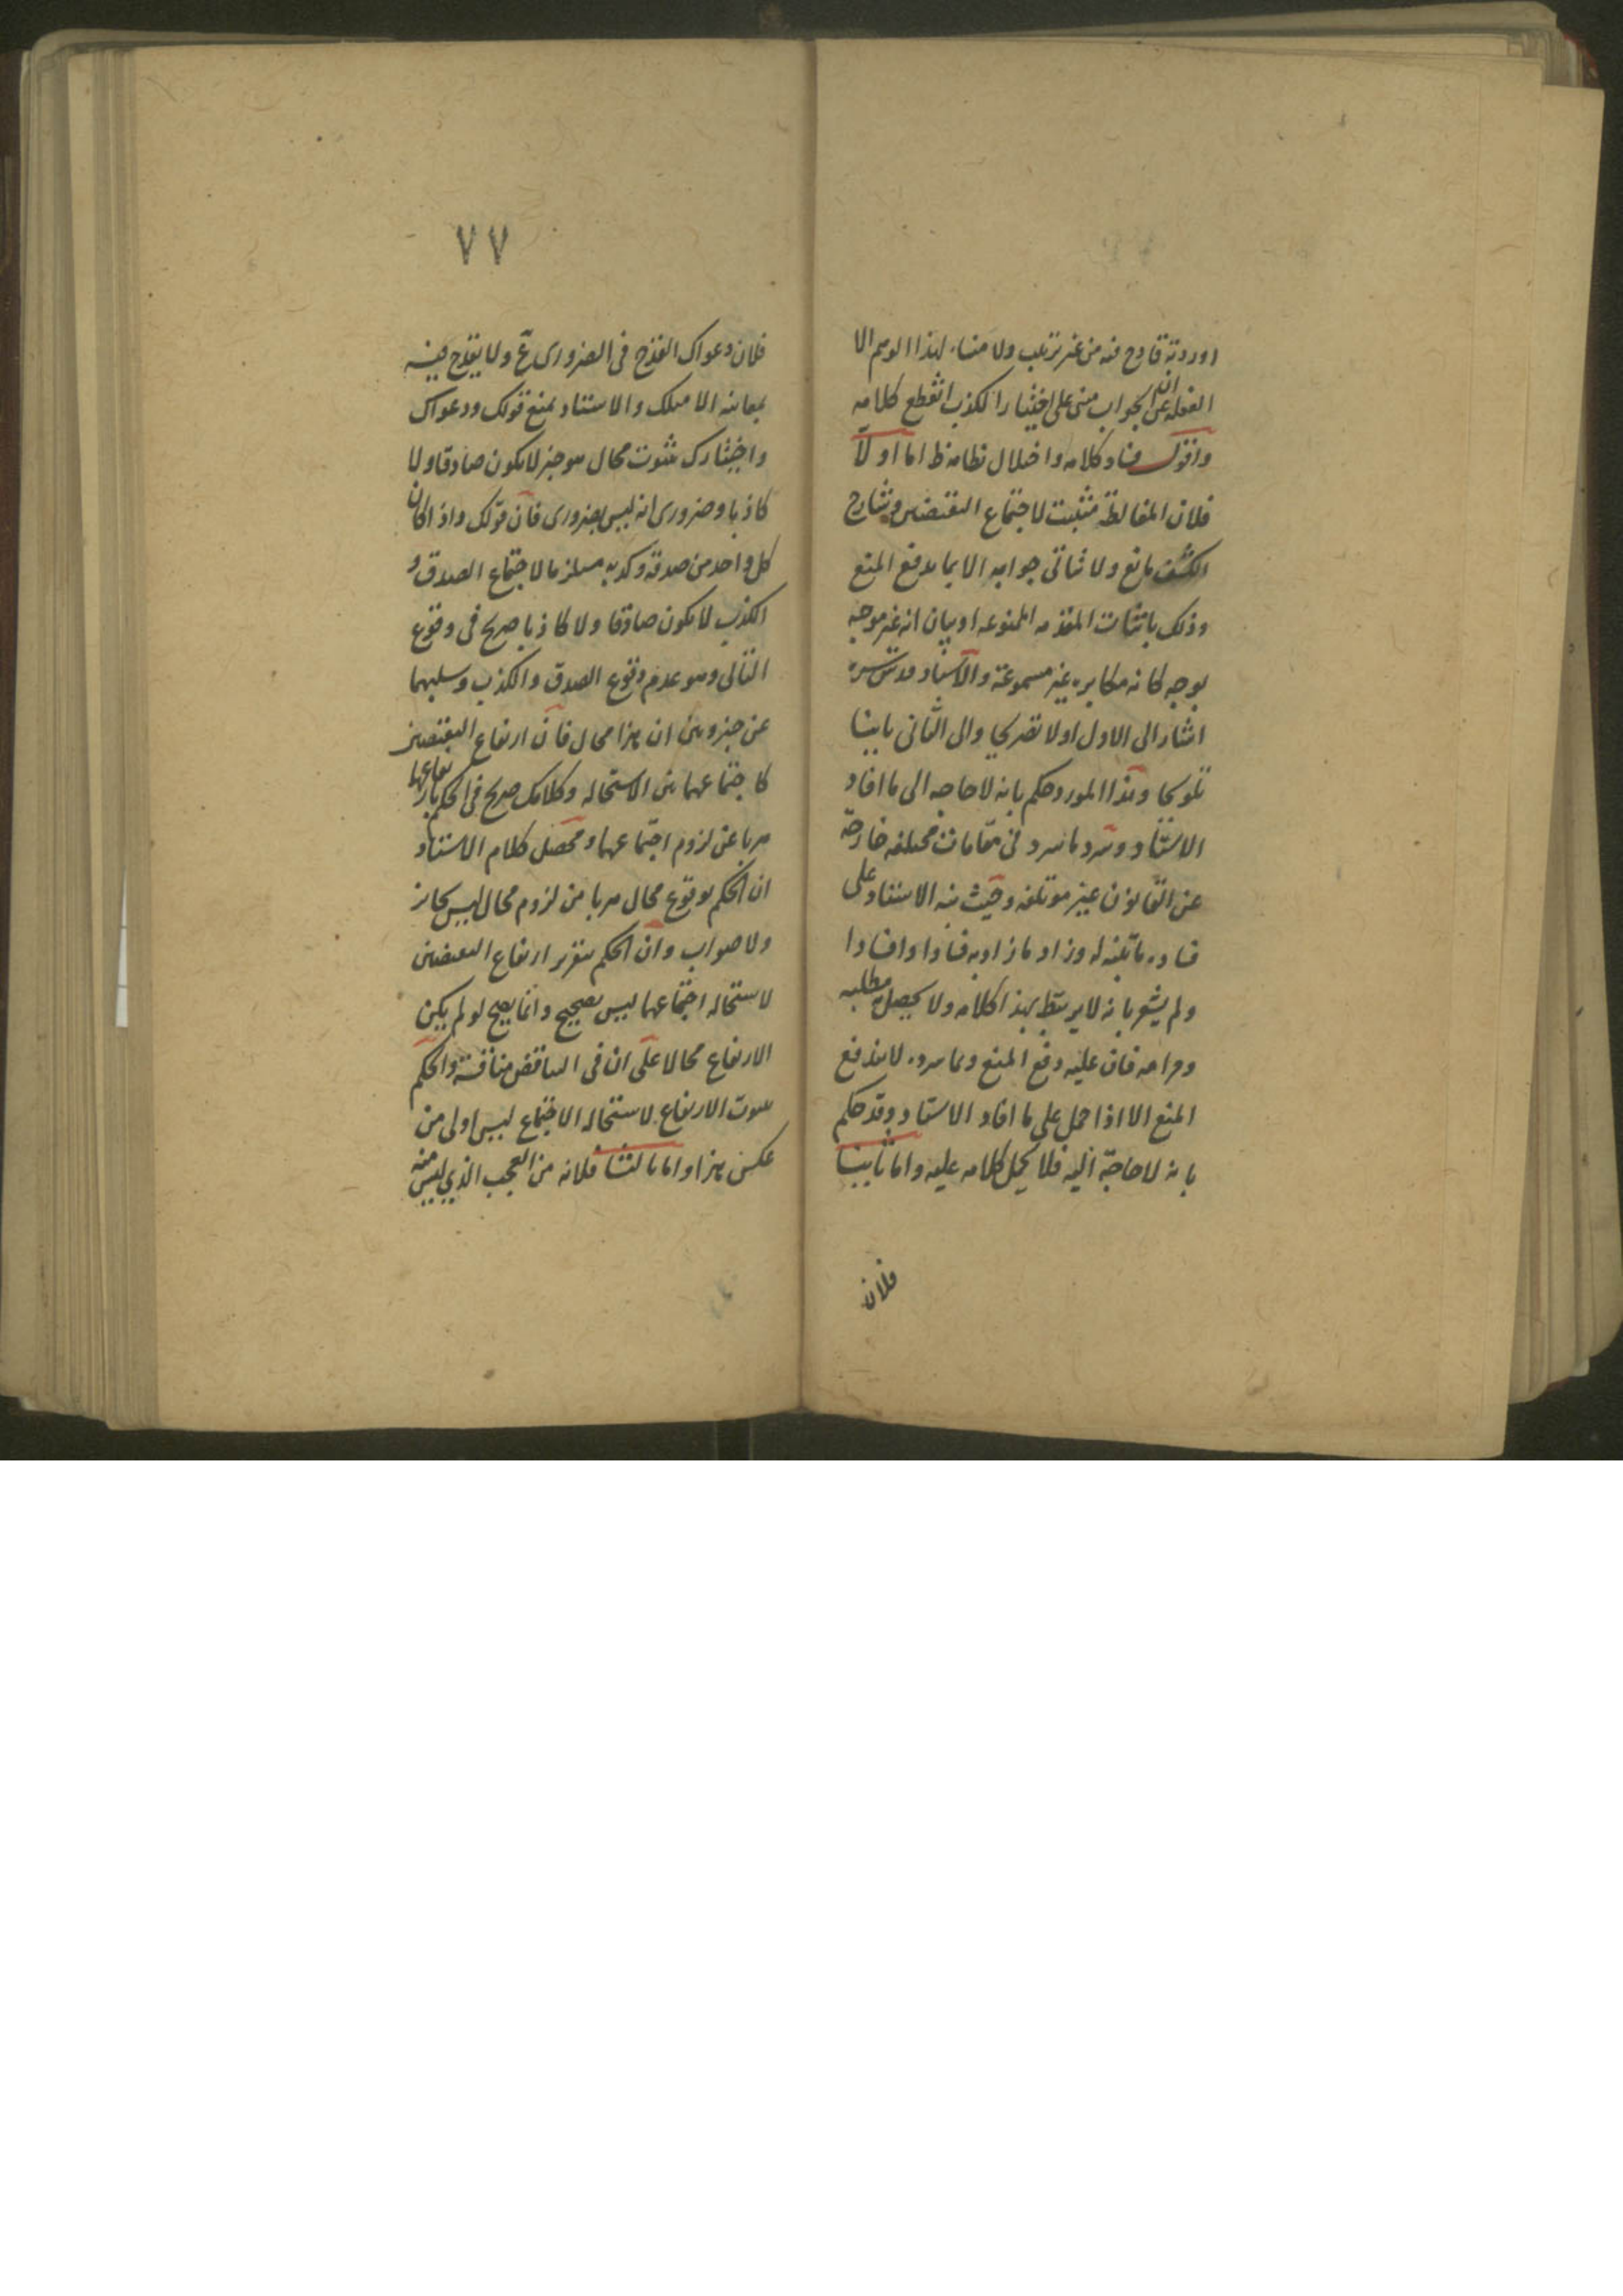 اوردته قادح فيه من غير ترتيب ولا منشاء لهذا الوهم الا
الغفلة عن ان الجواب مبنى على اختيار الكذب انقطع كلامه
واقول فساد كلامه واختلال نظامه ظ اما اولا
فلان المغالطة مثبت لاجتماع النقيضين وشارح
الكشف مانع ولا يتاتى جوابه الا بما يدفع المنع
وذلك باثبات المقدمه الممنوعه او بيان انه غير موجه
بوجه كانه مكابره غير مسموعة والاستاد قدس سره
اشار الى الاول اولا تصريحا والى الثانى ثانيا
تلويحا وهذا المورد حكم بانه لاحاجه الى ما افاد
الاستاد وسرد ما سرد فى مقامات مختلفه خارجة
عن القانون غير موتلفه وحيث نبه الاستاد على
فساده ما تنبه له وزاد ما زاد به فسادا وافسادا
ولم يشعر بانه لا يرتبط بهذا كلامه ولا يحصل به مطلبه
ومرامه فان عليه دفع المنع وبما سرده لا يندفع
المنع الا اذا حمل على ما افاد الاستاد وقد حكم
بانه لا حاجة اليه فلا يحمل كلامه عليه واما ثانيا
فلان
٧٧
فلان دعواك القدح فى الضرورى ع ولا يقدح فيه
بمعاينه الا مثلك والاستاد يمنع قولك ودعواك
واختيارك ثبوت محال هو خبر لا يكون صادقا ولا
كاذبا وضرورى انه ليس بضرورى فان قولك واذا كان
كل واحد من صدقه وكذبه مستلزما لاجتماع الصدق و
الكذب لا يكون صادقا ولا كاذبا صريح فى وقوع
التالى وهو عدم وقوع الصدق والكذب وسلبهما
عن خبر وبين ان هذا محال فان ارتفاع النقيضين
كاجتماعهما بين الاستحاله وكلامك صريح فى الحكم بارتفاعهما
هربا عن لزوم اجتماعهما ومحصل كلام الاستاد
ان الحكم بوقوع محال هربا من لزوم محال ليس بجائز
ولا صواب وان الحكم بتقرير ارتفاع النقيضين
لاستحاله اجتماعهما ليس بصحيح وانما يصح لو لم يكن
الارتفاع محالا على ان فى التناقض مناقشة والحكم
بثبوت الارتفاع لاستحاله الاجتماع ليس اولى من
عكس هذا واما ثالثا فلانه من العجب الذي ليس منه